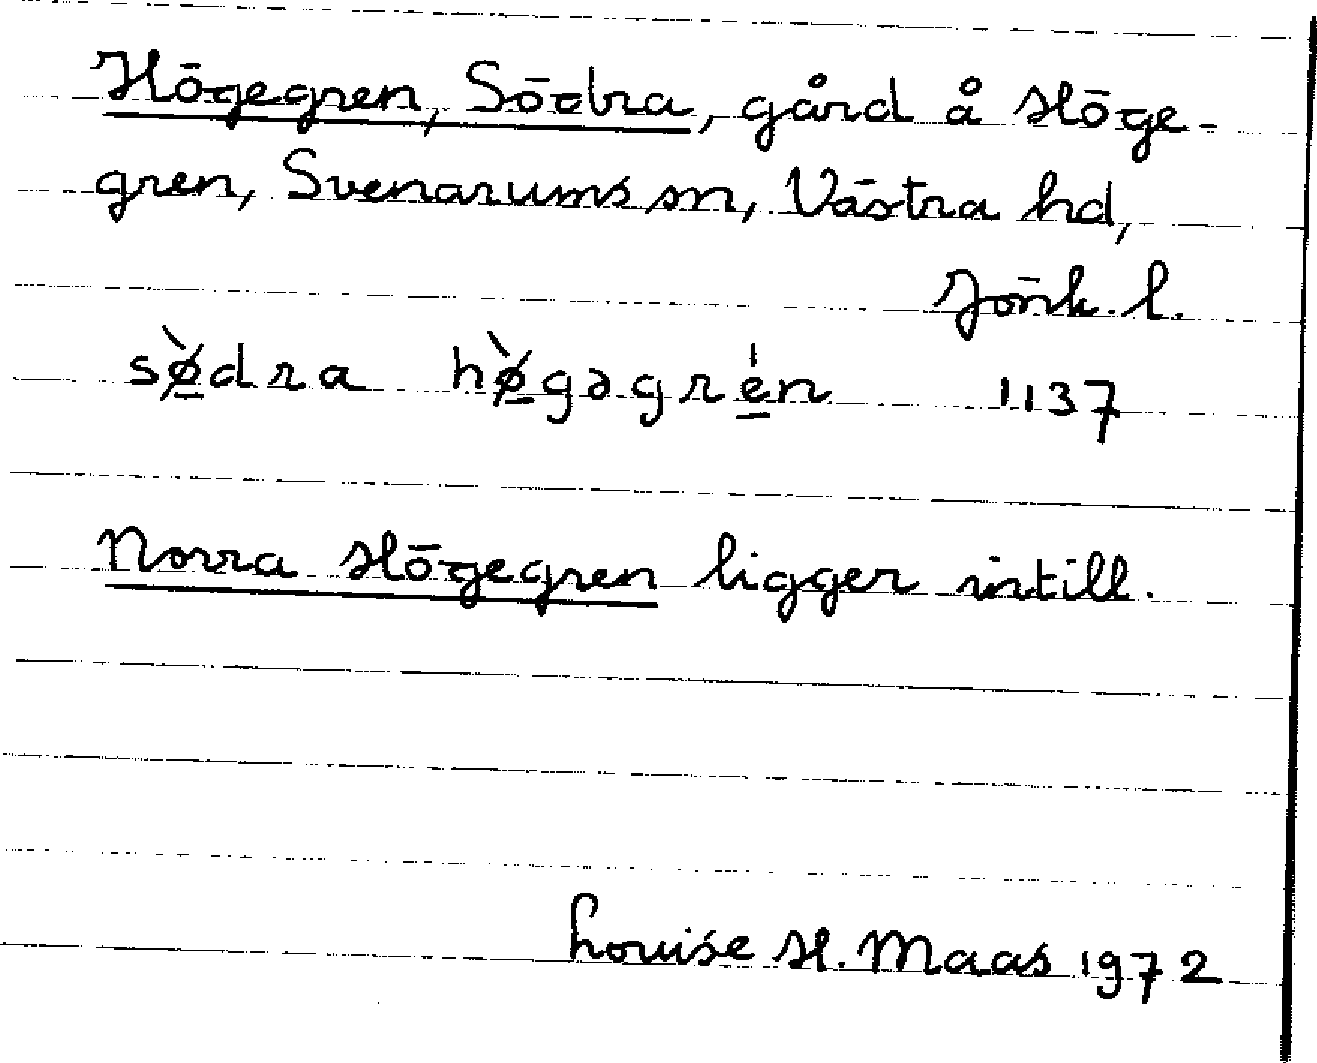 Högegren, Södra, gård å Höge-
gren, Svenarums sn, Västra hd,
Jönk. l.
sø̀dra hø̀gəgrén 1137
Norra Högegren ligger intill.
Louise H. Maas 1972